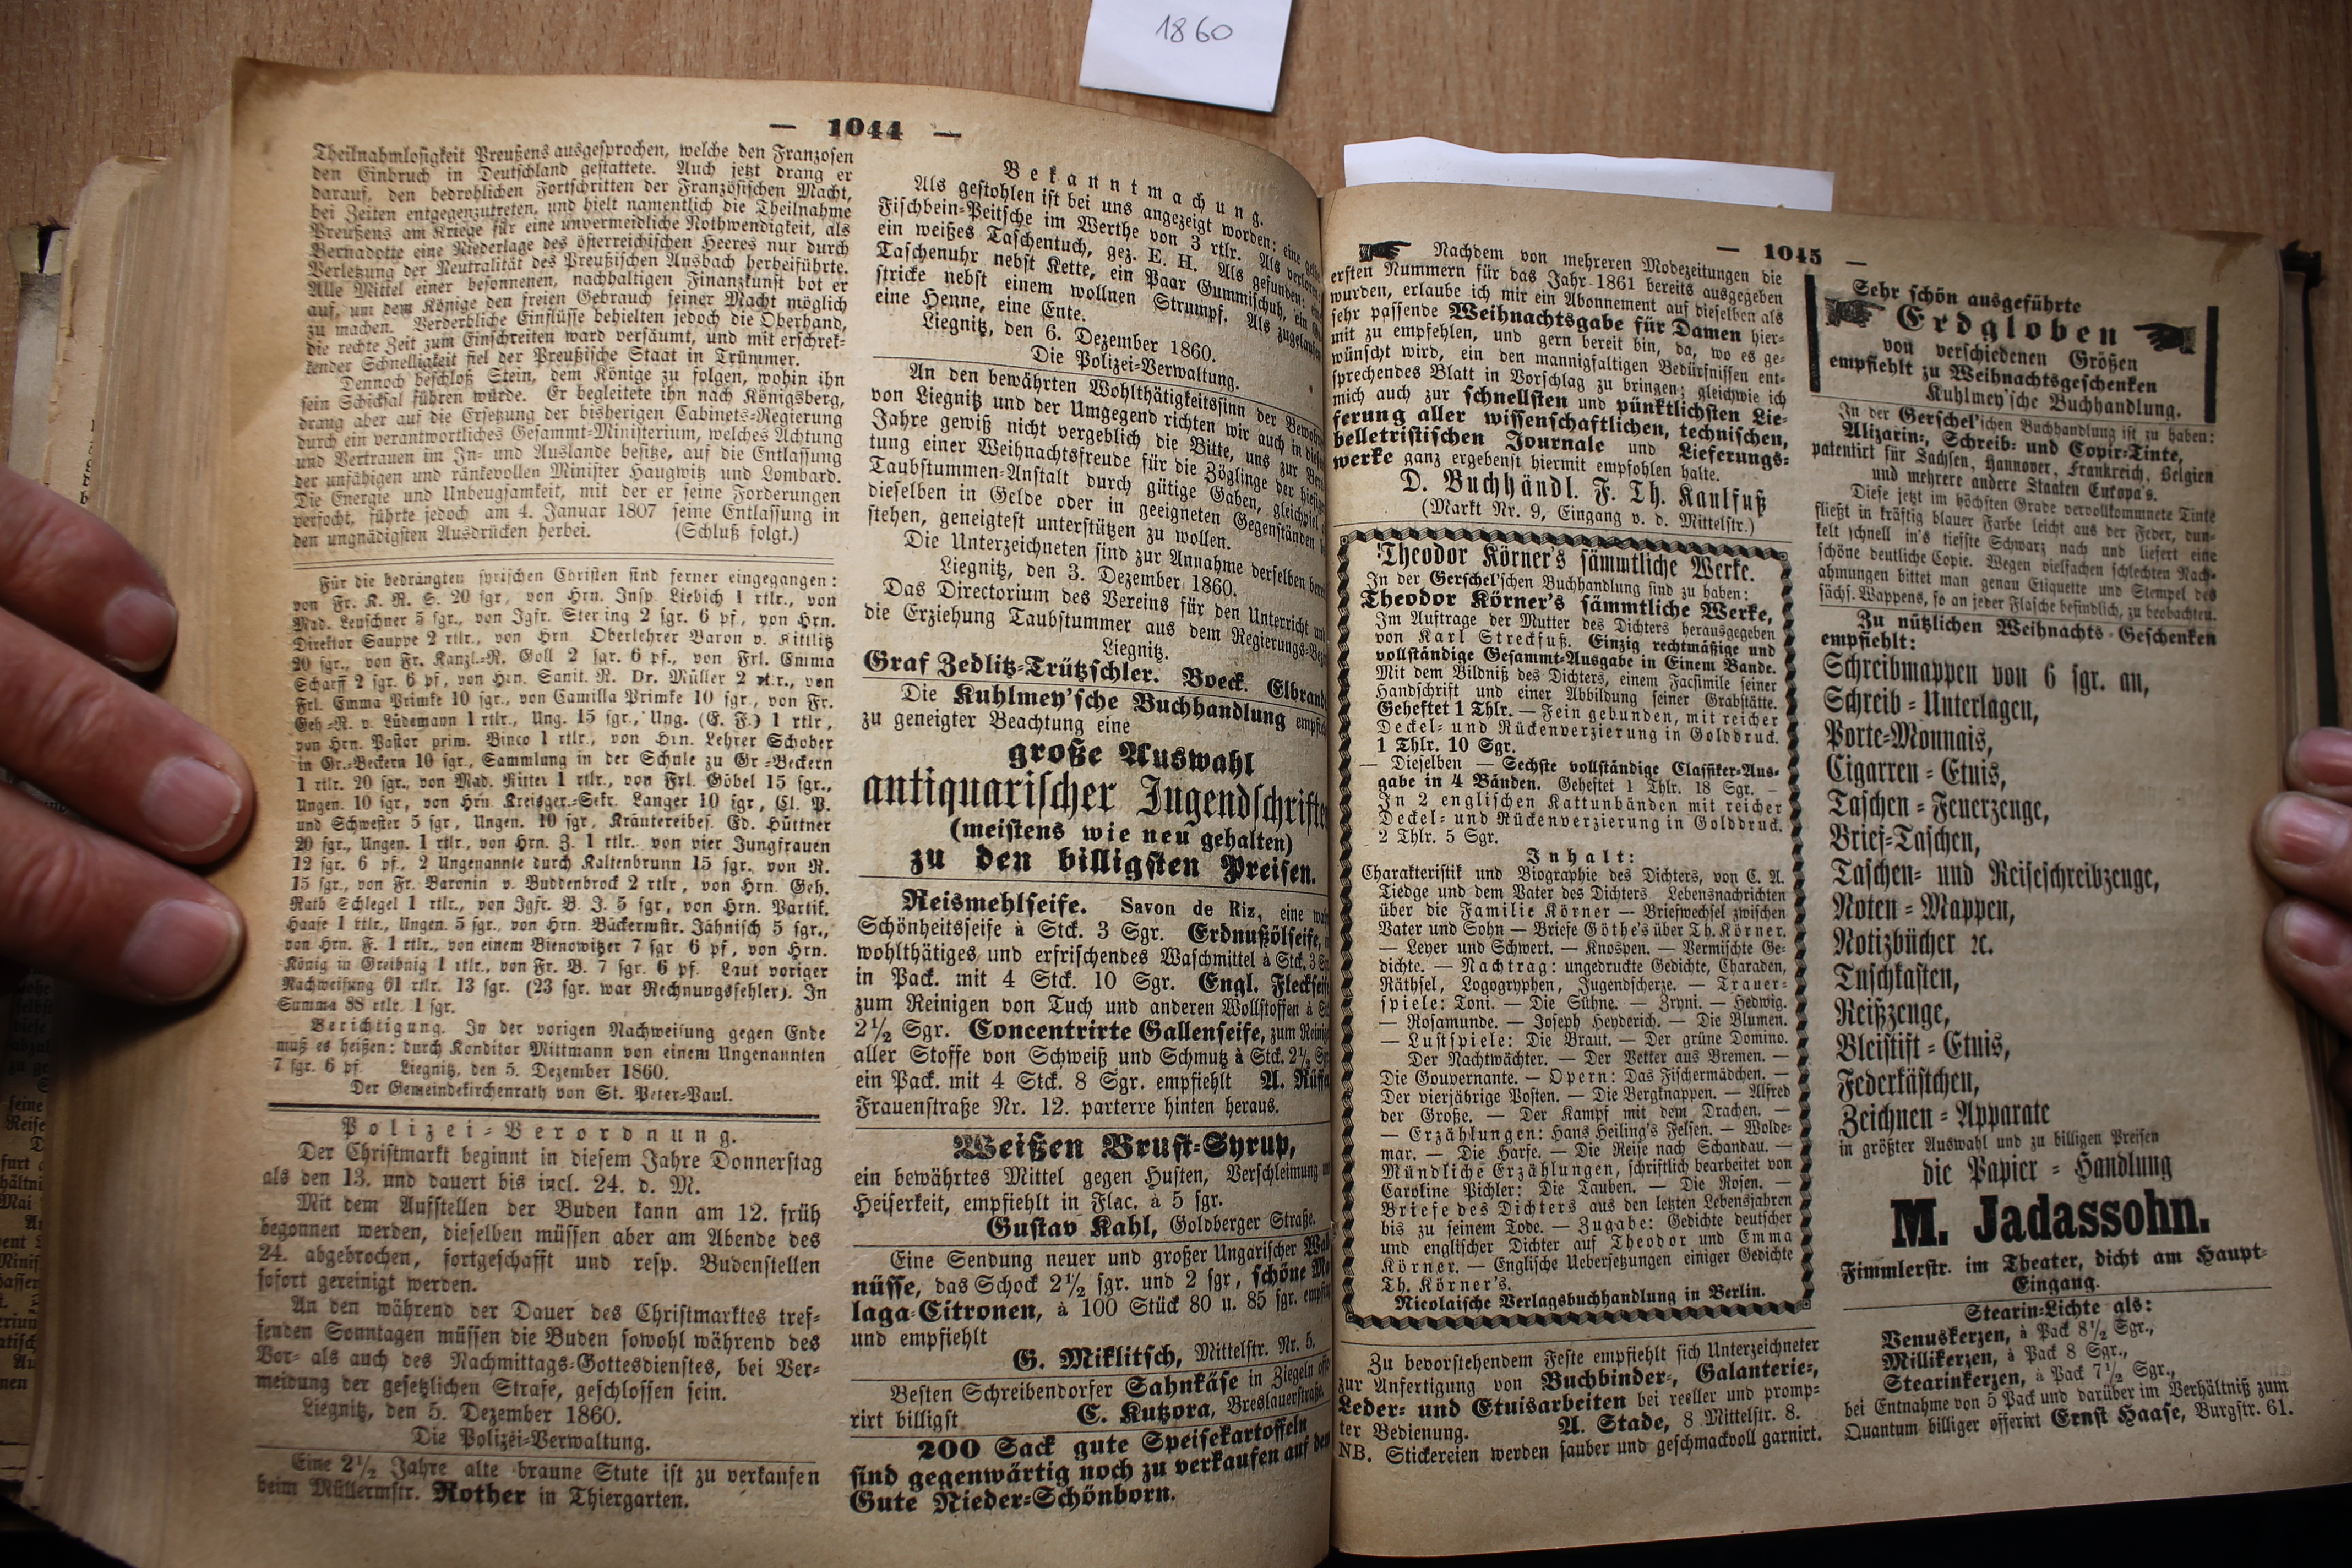 1860
— 1044 —
Theilnahmlosigkeit Preußens ausgesprochen, welche den Franzosen
den Einbruch in Deutschland gestattete. Auch jetzt drang er
darauf, den bedrohlichen Fortschritten der Französischen Macht,
bei Zeiten entgegenzutreten, und hielt namentlich die Theilnahme
Preußens am Kriege für eine unvermeidliche Nothwendigkeit, als
Bernadotte eine Niederlage des österreichischen Heeres nur durch
Verletzung der Neutralität des Preußischen Ansbach herbeiführte.
Alle Mittel einer besonnenen, nachhaltigen Finanzkunst bot er
auf, um dem Könige den freien Gebrauch seiner Macht möglich
zu machen. Verderbliche Einflüsse behielten jedoch die Oberhand,
die rechte Zeit zum Einschreiten ward versäumt, und mit erschrek-
kender Schnelligkeit fiel der Preußische Staat in Trümmer.
Dennoch beschloß Stein, dem Könige zu folgen, wohin ihn
sein Schicksal führen würde. Er begleitete ihn nach Königsberg,
drang aber auf die Ersetzung der bisherigen Cabinets-Regierung
durch ein verantwortliches Gesammt-Ministerium, welches Achtung
und Vertrauen im In- und Auslande besitze, auf die Entlassung
der unfähigen und ränkevollen Minister Haugwitz und Lombard.
Die Energie und Unbeugsamkeit, mit der er seine Forderungen
verfocht, führte jedoch am 4. Januar 1807 seine Entlassung in
den ungnädigsten Ausdrücken herbei. (Schluß folgt.)
Für die bedrängten syrischen Christen sind ferner eingegangen:
von Fr. K. R. S. 20 sgr., von Hrn. Insp. Liebich 1 rtlr., von
Mad. Leuschner 5 sgr., von Igfr. Stering 2 sgr. 6 pf., von Hrn.
Direktor Sauppe 2 rtlr., von Hrn. Oberlehrer Baron v. Kittlitz
20 sgr., von Fr. Kanzl.-R. Goll 2 sgr. 6 pf., von Frl. Emma
Scharff 2 sgr. 6 pf., von Hrn. Sanit. R. Dr. Müller 2 rtlr., von
Frl. Emma Primke 10 sgr., von Camilla Primke 10 sgr., von Fr.
Geh-R. v. Lüdemann 1 rtlr., Ung. 15 sgr., Ung. (E. F.) 1 rtlr.,
von Hrn. Pastor prim. Binco 1 rtlr., von Hrn. Lehrer Schober
in Gr.-Beckern 10 sgr., Sammlung in der Schule zu Gr-Beckern
1 rtlr. 20 sgr., von Mad. Ritter 1 rtlr., von Frl. Göbel 15 sgr.,
Ungen. 10 sgr., von Hrn Kreisger.-Sekr. Langer 10 sgr., Cl. P.
und Schwester 5 sgr., Ungen. 10 sgr, Kräutereibes. Ed. Hüttner
20 sgr., Ungen. 1 rtlr., von Hrn. Z. 1 rtlr. von vier Jungfrauen
12 sgr. 6 pf., 2 Ungenannte durch Kaltenbrunn 15 sgr., von R.
15 sgr., von Fr. Baronin v. Buddenbrock 2 rtlr, von Hrn. Geh.
Rath Schlegel 1 rtlr., von Igfr. B. J. 5 sgr, von Hrn. Partik.
Haase 1 rtlr., Ungen. 5 sgr., von Hrn. Bäckermstr. Jähnisch 5 sgr.,
von Hrn. F. 1 rtlr., von einem Bienowitzer 7 sgr 6 pf, von Hrn.
König in Greibnig 1 rtlr., von Fr. B. 7 sgr. 6 pf. Laut voriger
Nachweisung 61 rtlr. 13 sgr. (23 sgr. war Rechnungsfehler). In
Summa 88 rtlr. 1 sgr.
Berichtigung. In der vorigen Nachweisung gegen Ende
muß es heißen: durch Konditor Mittmann von einem Ungenannten
7 sgr. 6 pf. Liegnitz, den 5. Dezember 1860.
Der Gemeindekirchenrath von St. Peter-Paul.
Polizei-Verordnung.
Der Christmarkt beginnt in diesem Jahre Donnerstag
als den 13. und dauert bis incl. 24. d. M.
Mit dem Aufstellen der Buden kann am 12. früh
begonnen werden, dieselben müssen aber am Abende des
24. abgebrochen, fortgeschafft und resp. Budenstellen
sofort gereinigt werden.
An den während der Dauer des Christmarktes tref-
fenden Sonntagen müssen die Buden sowohl während des
Vor- als auch des Nachmittags-Gottesdienstes, bei Ver-
meidung der gesetzlichen Strafe, geschlossen sein.
Liegnitz, den 5. Dezember 1860.
Die Polizei-Verwaltung.
Eine 2½ Jahre alte braune Stute ist zu verkaufen
beim Müllermstr. Rother in Thiergarten.
Bekanntmachung.
Als gestohlen ist bei uns angezeigt worden: eine
Fischbein-Peitsche im Werthe von 3 rtlr. Als verloren:
ein weißes Taschentuch, gez. E. H. Als gefunden: eine
Taschenuhr nebst Kette, ein Paar Gummischuh, ein
stricke nebst einem wollnen Strumpf. Als zugelaufen
eine Henne, eine Ente.
Liegnitz, den 6. Dezember 1860.
Die Polizei-Verwaltung.
An den bewährten Wohlthätigkeitssinn der
von Liegnitz und der Umgegend richten wir auch in
Jahre gewiß nicht vergeblich die Bitte, uns zur
tung einer Weihnachtsfreude für die Zöglinge der
Taubstummen-Anstalt durch gütige Gaben, gleichviel
dieselben in Gelde oder in geeigneten Gegenständen
stehen, geneigtest unterstützen zu wollen.
Die Unterzeichneten sind zur Annahme derselben
Liegnitz, den 3. Dezember 1860.
Das Directorium des Vereins für den Unterricht
die Erziehung Taubstummer aus dem Regierungs-
Liegnitz.
Graf Zedlitz-Trützschler. Boeck.
Die Kuhlmey'sche Buchhandlung
zu geneigter Beachtung eine
große Auswahl
antiquarischer Jugendschriften
(meistens wie neu gehalten)
zu den billigsten Preisen.
Reismehlseife. Savon de Riz, eine
Schönheitsseife à Stck. 3 Sgr. Erdnußölseife,
wohlthätiges und erfrischendes Waschmittel à Stck. 3
in Pack. mit 4 Stck. 10 Sgr. Engl. Fleckseife
zum Reinigen von Tuch und anderen Wollstoffen à
2½ Sgr. Concentrirte Gallenseife, zum
aller Stoffe von Schweiß und Schmutz à Stck. 2½
ein Pack. mit 4 Stck. 8 Sgr. empfiehlt A.
Frauenstraße Nr. 12. parterre hinten heraus.
Weißen Brust-Syrup,
ein bewährtes Mittel gegen Husten, Verschleimung
Heiserkeit, empfiehlt in Flac. à 5 sgr.
Gustav Kahl, Goldberger Straße.
Eine Sendung neuer und großer Ungarischer
nüsse, das Schock 2½ sgr. und 2 sgr, schöne
laga-Citronen, à 100 Stück 80 u. 85 sgr.
und empfiehlt
G. Miklitsch, Mittelstr. Nr. 5.
Besten Schreibendorfer Sahnkäse in Ziegeln
rirt billigst C. Kutzora, Breslauerstraße.
200 Sack gute Speisekartoffeln
sind gegenwärtig noch zu verkaufen auf dem
Gute Nieder-Schönborn.
— 1045 —
Nachdem von mehreren Modezeitungen die
ersten Nummern für das Jahr 1861 bereits ausgegeben
wurden, erlaube ich mir ein Abonnement auf dieselben als
sehr passende Weihnachtsgabe für Damen hier-
mit zu empfehlen, und gern bereit bin, da, wo es ge-
wünscht wird, ein den mannigfaltigen Bedürfnissen ent-
sprechendes Blatt in Vorschlag zu bringen; gleichwie ich
mich auch zur schnellsten und pünktlichsten Lie-
ferung aller wissenschaftlichen, technischen,
belletristischen Journale und Lieferungs-
werke ganz ergebenst hiermit empfohlen halte.
D. Buchhändl. F. Th. Kaulfuß
(Markt Nr. 9, Eingang v. d. Mittelstr.)
Theodor Körner's sämmtliche Werke.
In der Gerschel'schen Buchhandlung sind zu haben:
Theodor Körner's sämmtliche Werke,
Im Auftrage der Mutter des Dichters herausgegeben
von Karl Streckfuß. Einzig rechtmäßige und
vollständige Gesammt-Ausgabe in Einem Bande.
Mit dem Bildniß des Dichters, einem Facsimile seiner
Handschrift und einer Abbildung seiner Grabstätte.
Geheftet 1 Thlr. — Fein gebunden, mit reicher
Deckel- und Rückenverzierung in Golddruck.
1 Thlr. 10 Sgr.
— Dieselben — Sechste vollständige Classiker-Aus-
gabe in 4 Bänden. Geheftet 1 Thlr. 18 Sgr. —
In 2 englischen Kattunbänden mit reicher
Deckel- und Rückenverzierung in Golddruck.
2 Thlr. 5 Sgr.
Inhalt:
Charakteristik und Biographie des Dichters, von C. A.
Tiedge und dem Vater des Dichters Lebensnachrichten
über die Familie Körner — Briefwechsel zwischen
Vater und Sohn — Briefe Göthe's über Th. Körner.
— Leyer und Schwert. — Knospen. — Vermischte Ge-
dichte. — Nachtrag: ungedruckte Gedichte, Charaden,
Räthsel, Logogryphen, Jugendscherze. — Trauer-
spiele: Toni. — Die Sühne. — Zryni. — Hedwig.
— Rosamunde. — Joseph Heyderich. — Die Blumen.
— Lustspiele: Die Braut. — Der grüne Domino.
Der Nachtwächter. — Der Vetter aus Bremen. —
Die Gouvernante. — Opern: Das Fischermädchen. —
Der vierjährige Posten. — Die Bergknappen. — Alfred
der Große. — Der Kampf mit dem Drachen. —
— Erzählungen: Hans Heiling's Felsen. — Wolde-
mar. — Die Harfe. — Die Reise nach Schandau. —
Mündliche Erzählungen, schriftlich bearbeitet von
Caroline Pichler: Die Tauben. — Die Rosen. —
Briefe des Dichters aus den letzten Lebensjahren
bis zu seinem Tode. — Zugabe: Gedichte deutscher
und englischer Dichter auf Theodor und Emma
Körner. — Englische Uebersetzungen einiger Gedichte
Th. Körner's.
Nicolaische Verlagsbuchhandlung in Berlin.
Zu bevorstehendem Feste empfiehlt sich Unterzeichneter
zur Anfertigung von Buchbinder-, Galanterie-,
Leder- und Etuisarbeiten bei reeller und promp-
ter Bedienung. A. Stade, 8 Mittelstr. 8.
NB. Stickereien werden sauber und geschmackvoll garnirt.
Sehr schön ausgeführte
Erdgloben
von verschiedenen Größen
empfiehlt zu Weihnachtsgeschenken
Kuhlmey'sche Buchhandlung.
In der Gerschel'schen Buchhandlung ist zu haben:
Alizarin-, Schreib- und Copir-Tinte,
patentirt für Sachsen, Hannover, Frankreich, Belgien
und mehrere andere Staaten Europa's.
Diese jetzt im höchsten Grade vervollkommnete Tinte
fließt in kräftig blauer Farbe leicht aus der Feder, dun-
kelt schnell in's tiefste Schwarz nach und liefert eine
schöne deutliche Copie. Wegen vielfachen schlechten Nach-
ahmungen bittet man genau Etiquette und Stempel des
sächs. Wappens, so an jeder Flasche befindlich, zu beobachten.
Zu nützlichen Weihnachts-Geschenken
empfiehlt:
Schreibmappen von 6 sgr. an,
Schreib-Unterlagen,
Porte-Monnais,
Cigarren-Etuis,
Taschen-Feuerzeuge,
Brief-Taschen,
Taschen- und Reiseschreibzeuge,
Noten-Mappen,
Notizbücher ꝛc.
Tuschkasten,
Reißzeuge,
Bleistift-Etuis,
Federkästchen,
Zeichnen-Apparate
in größter Auswahl und zu billigen Preisen
die Papier-Handlung
M. Jadassohn.
Fimmlerstr. im Theater, dicht am Haupt-
Eingang.
Stearin-Lichte als:
Venuskerzen, à Pack 8½ Sgr.,
Millikerzen, à Pack 8 Sgr.,
Stearinkerzen, à Pack 7½ Sgr.,
bei Entnahme von 5 Pack und darüber im Verhältniß zum
Quantum billiger offerirt Ernst Haase, Burgstr. 61.